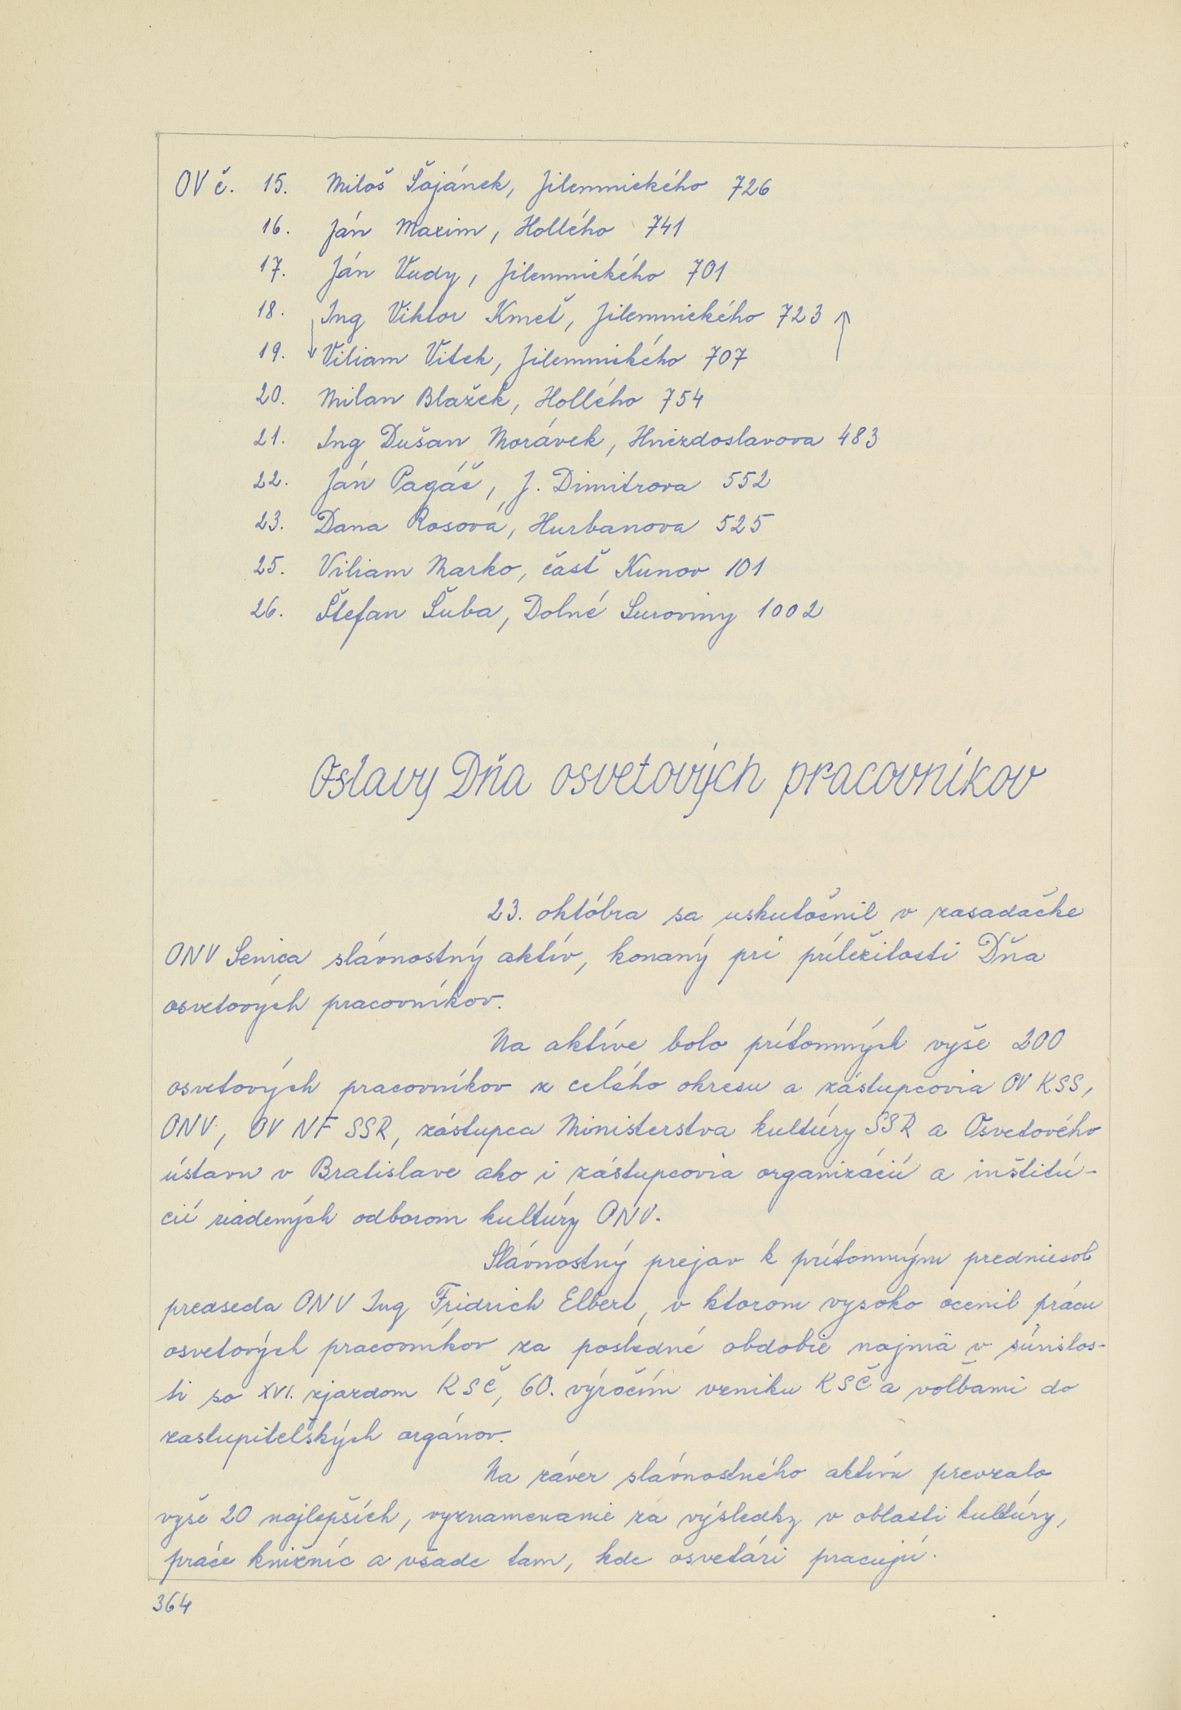 OV č. 15. Miloš Šajánek, Jilemnického 726
16. Ján Maxim, Hollého 741
17. Ján Vudy, Jilemnického 701
18. Ing Viktor Kmeť, Jilemnického 723
19. Viliam Vitek, Jilemnického 707
20. Milan Blažek, Hollého 754
21. Ing Dušan Morávek, Hviezdoslavova 483
22. Ján Pagáč, J. Dimitrova 552
23. Dana Rosová, Hurbanova 525
25. Viliam Marko, časť Kunov 101
26. Štefan Šuba, Dolné Suroviny 1002
Oslavy Dňa osvetových pracovníkov
23. októbra sa uskutočnil v zasadačke
ONV Senica slávnostný aktív, konaný pri príležitosti Dňa
osvetových pracovníkov.
Na aktíve bolo prítomných vyše 200
osvetových pracovníkov z celého okresu a zástupcovia OV KSS,
ONV, OV NF SSR, zástupca Ministerstva kultúry SSR a Osvetového
ústavu v Bratislave ako i zástupcovia organizácií a inštitú-
cií riadených odborom kultúry ONV.
Slávnostný prejav k prítomným predniesol
predseda ONV Ing Fridrich Elbert, v ktorom vysoko ocenil prácu
osvetových pracovníkov za posledné obdobie najmä v súvislos-
ti so XVI. zjazdom KSČ, 60. výročím vzniku KSČ a voľbami do
zastupiteľských orgánov.
Na záver slávnostného aktívu prevzalo
vyše 20 najlepších, vyznamenanie za výsledky v oblasti kultúry,
práce knižníc a všade tam, kde osvetári pracujú.
364